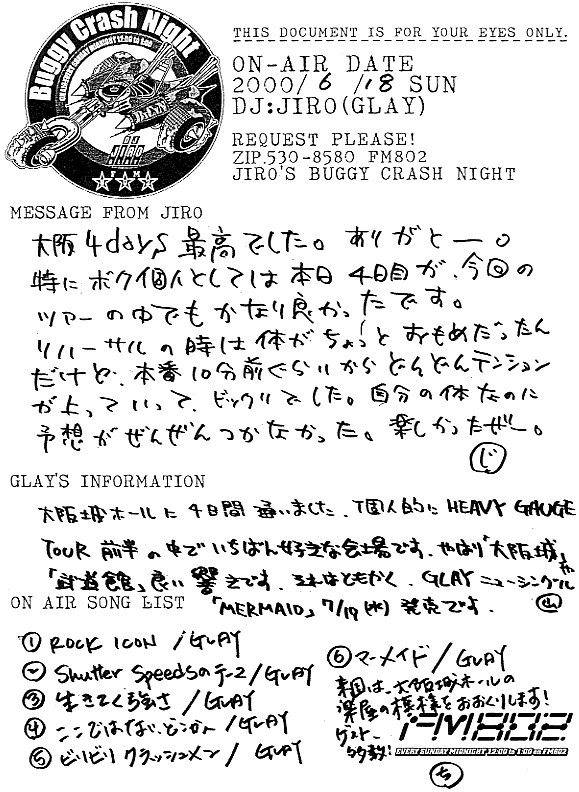 Buggy Crash Night
FM
THIS DOCUMENT IS FOR YOUR EYES ONLY.
ON-AIR DATE
2000/6/18 SUN
DJ:JIRO(GLAY)
REQUEST PLEASE!
ZIP.530-8580 FM802
JIRO'S BUGGY CRASH NIGHT
MESSAGE FROM JIRO
大阪4days最高でした。ありがとー。
特にボク個人としては本日4日目が、今回の
ツアーの中でもかなり良かったです。
リハーサルの時は体がちょっとおもめだったん
だけど、本番10分前ぐらいからどんどんテンション
が上っていって、ビックリでした。自分の体なのに
予想がぜんぜんつかなかった。楽しかったぜー。
じ
GLAY'S INFORMATION
大阪城ホールに4日間通いました、個人的にHEAVY GAUGE
TOUR 前半の中でいちばん好きな会場です。やはり「大阪城」や
「武道館」良い響きです。それはともかく、GLAYニューシングル
「MERMAID」7/19(水)発売です。
ON AIR SONG LIST
① ROCK ICON / GLAY
② Shutter Speedsのテーマ / GLAY
③ 生きてく強さ / GLAY
④ ここではない、どこかへ / GLAY
⑤ ビリビリ クラッシュメン / GLAY
⑥ マーメイド / GLAY
来週は、大阪城ホールの
楽屋の模様をおおくりします!
ゲスト
多数!
FM802
EVERY SUNDAY MIDNIGHT 12:00 to 1:00 on FM802